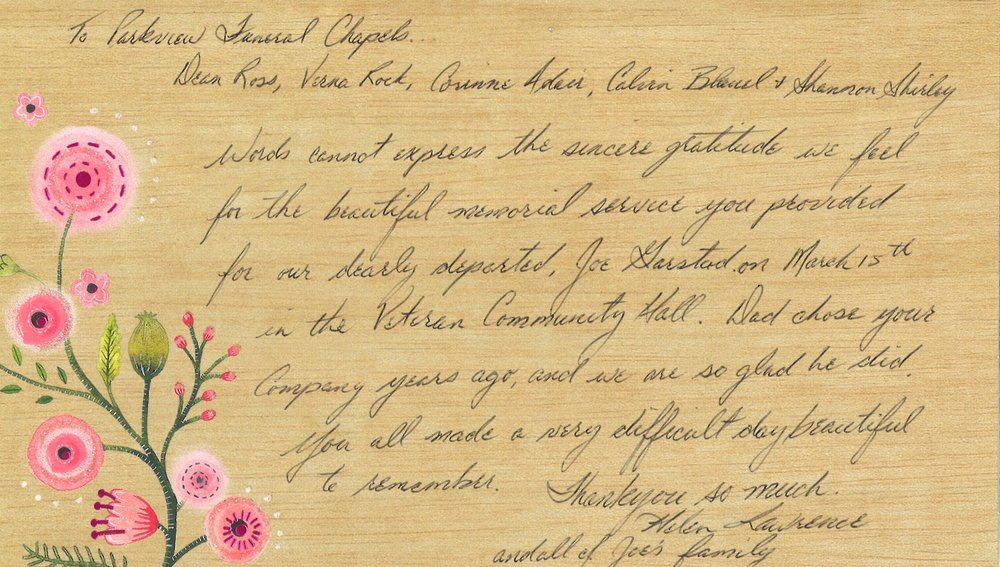 To Parkview Funeral Chapels...
Dean Ross, Verna Rock, Corinne Adair, Calvin & Shannon Shirley
Words cannot express the sincere gratitude we feel
for the beautiful memorial service you provided
for our dearly departed, Joe on March 15th
in the Veteran Community Hall. Dad chose your
Company years ago, and we are so glad he did.
You all made a very difficult day beautiful
to remember. Thankyou so much.
Helen Lawrence
and all of Joe's family